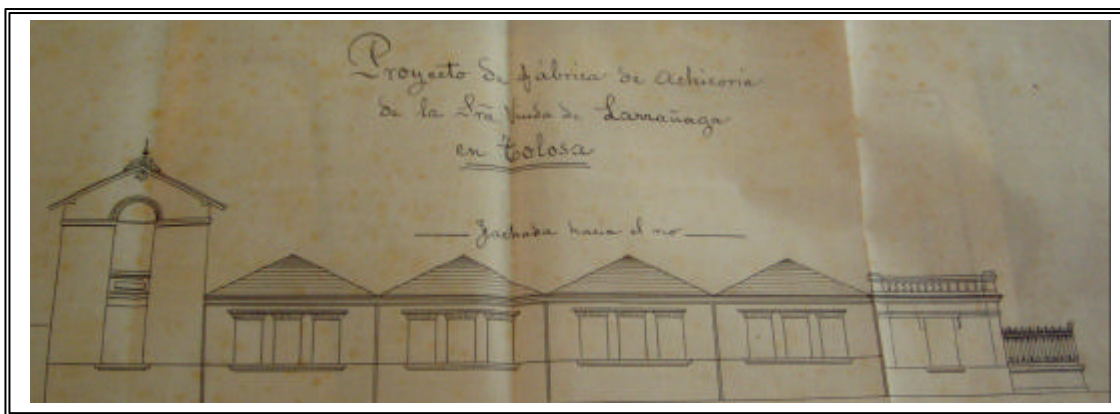 Proyecto de fábrica de achicoria
de la Sra Viuda de Larrañaga
en Tolosa
Fachada hacia el rio